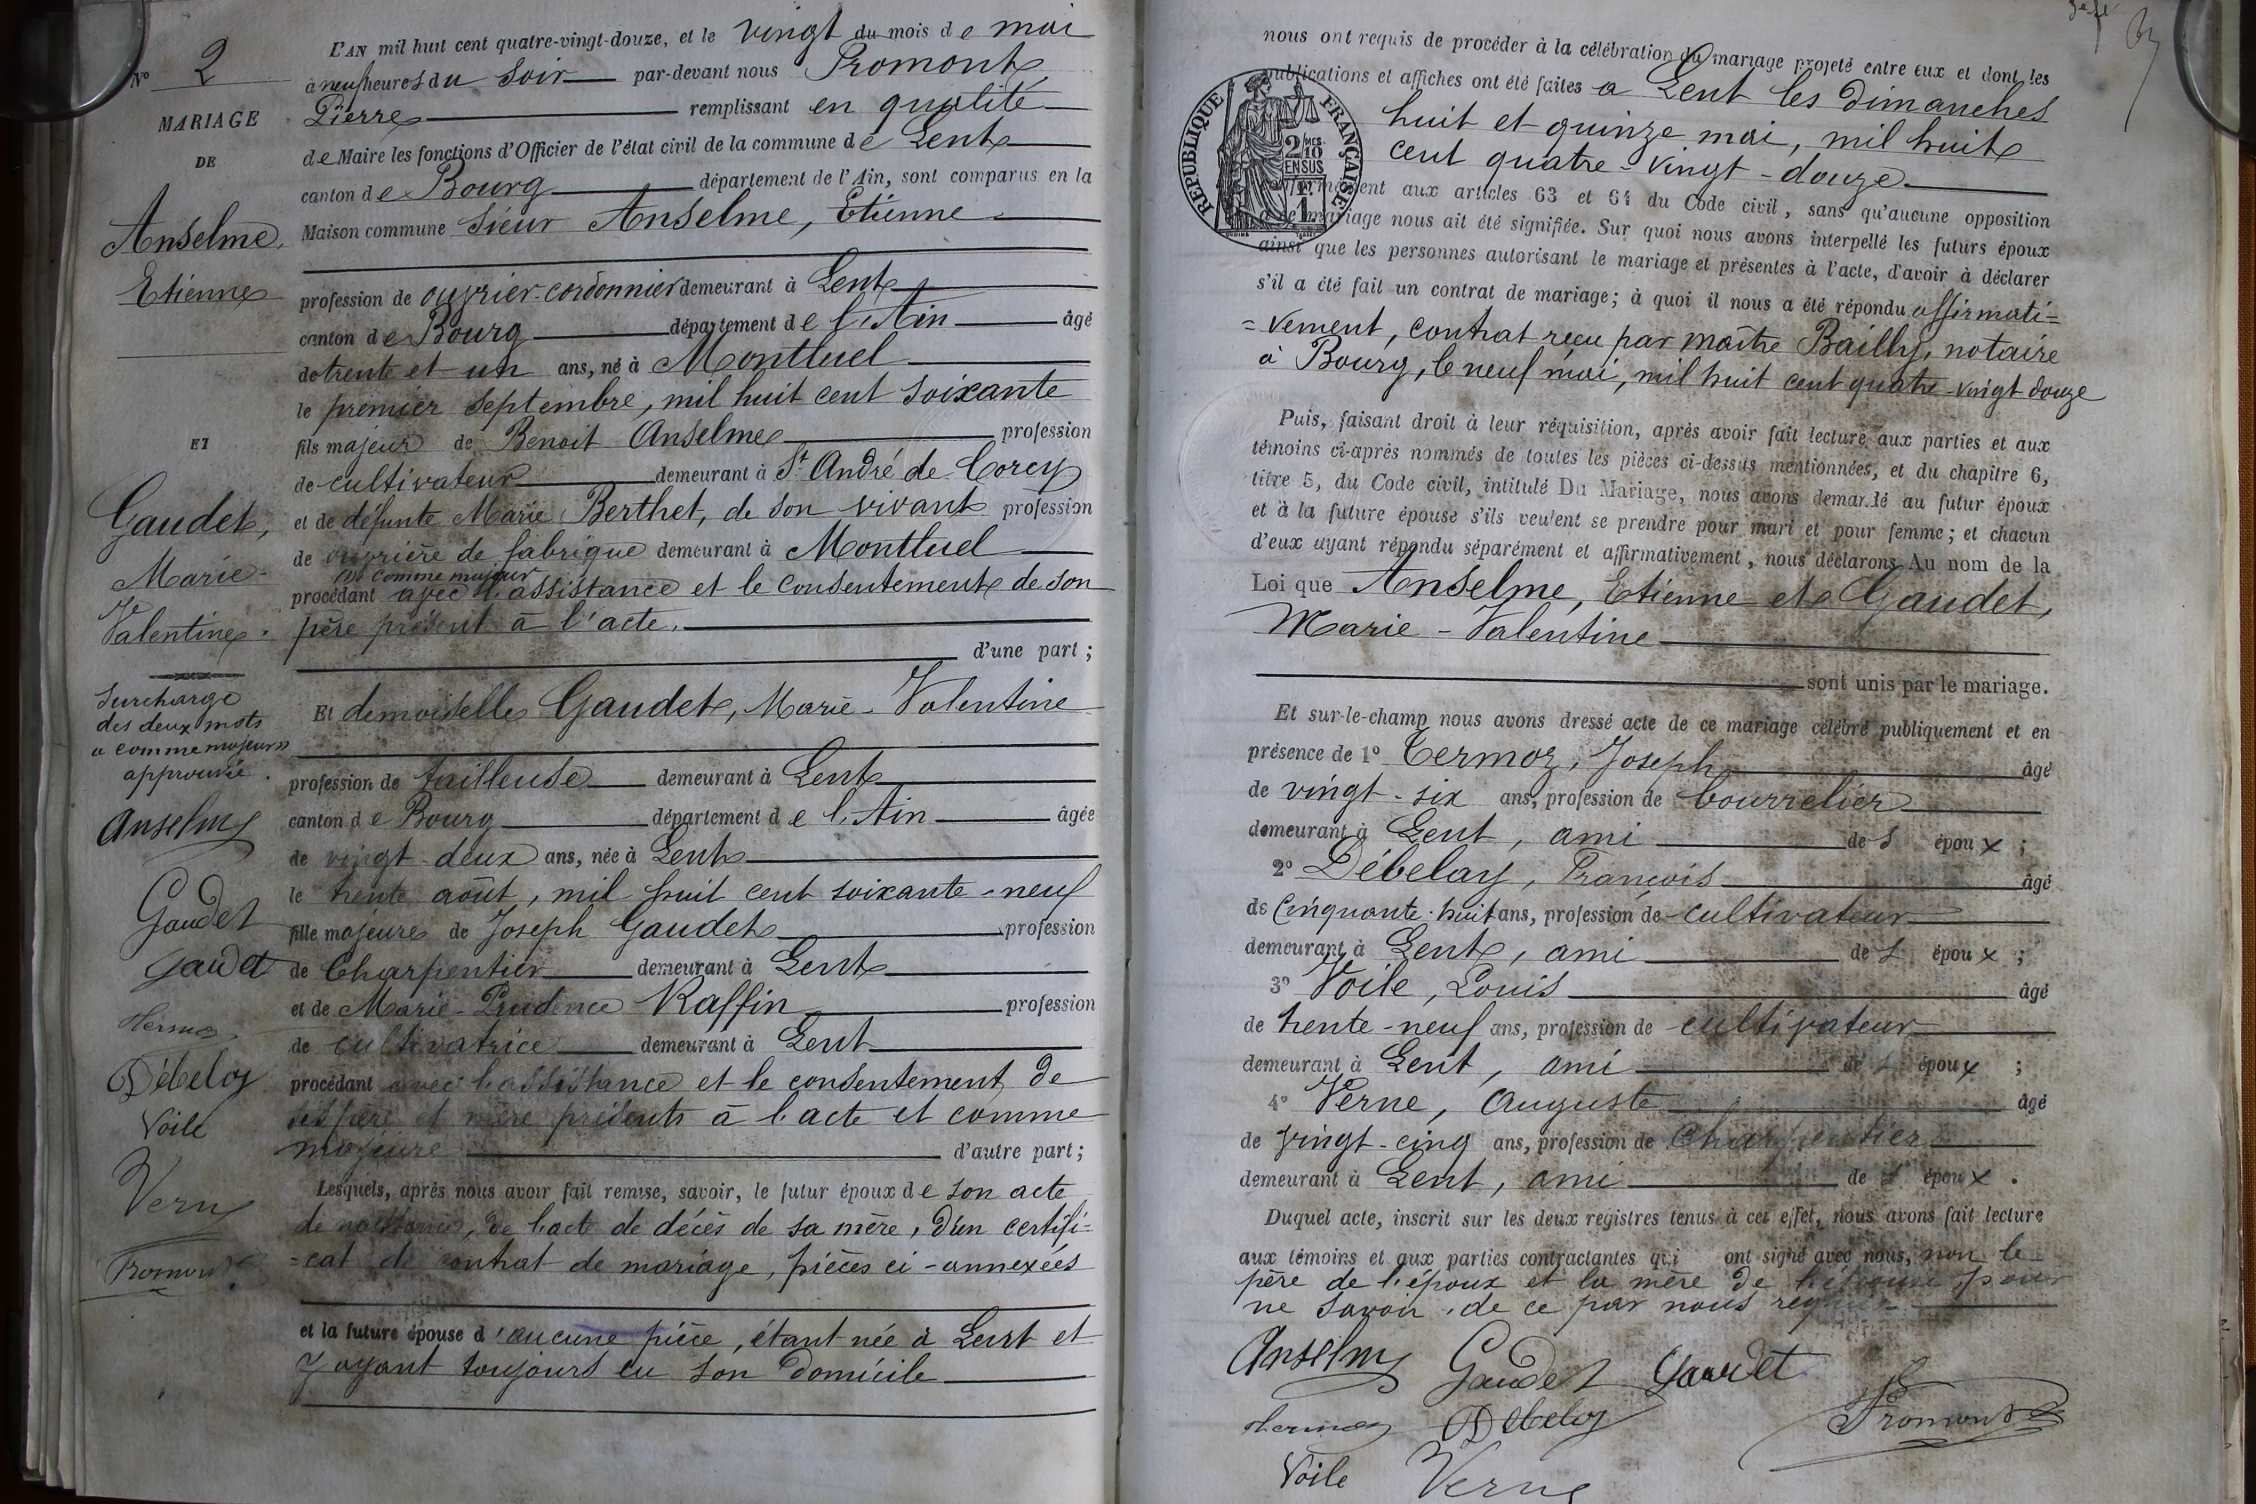 N° 2
MARIAGE
DE
Anselme,
Etienne
ET
Gaudet,
Marie-
Valentine.
Surcharge
des deux mots
"comme majeur"
approuvée.
Anselm
Gaudet
Gaudet
Débeley
Voile
Verne
Promont
L'AN mil huit cent quatre-vingt-douze, et le vingt du mois de mai
à neuf heures du soir par-devant nous Promont
Pierre remplissant en qualité
de Maire les fonctions d'Officier de l'état civil de la commune de Lent
canton de Bourg département de l'Ain, sont comparus en la
Maison commune sieur Anselme, Etienne
profession de ouvrier-cordonnier demeurant à Lent
canton de Bourg département de l'Ain âgé
de trente et un ans, né à Montluel
le premier septembre, mil huit cent soixante
fils majeur de Benoit Anselme profession
de cultivateur demeurant à St André de Corcy
et de défunte Marie Berthet, de son vivant profession
de ouvrière de fabrique demeurant à Montluel
comme majeur
procédant avec l'assistance et le consentement de son
père présent à l'acte.
d'une part ;
Et demoiselle Gaudet, Marie-Valentine
profession de tailleuse demeurant à Lent
canton de Bourg département de l'Ain âgée
de vingt-deux ans, née à Lent
le trente août, mil huit cent soixante-neuf
fille majeure de Joseph Gaudet profession
de Charpentier demeurant à Lent
et de Marie-Prudence Raffin profession
de cultivatrice demeurant à Lent
procédant avec l'assistance et le consentement de
ses père et mère présents à l'acte et comme
majeure d'autre part ;
Lesquels, après nous avoir fait remise, savoir, le futur époux de son acte
de naissance, de l'acte de décès de sa mère, d'un certifi=
=cat de contrat de mariage, pièces ci-annexées
et la future épouse d'aucune pièce, étant née à Lent et
y ayant toujours eu son domicile
nous ont requis de procéder à la célébration du mariage projeté entre eux et dont les
publications et affiches ont été faites à Lent les dimanches
huit et quinze mai, mil huit
cent quatre-vingt-douze
RÉPUBLIQUE FRANÇAISE
2/10 EN SUS
conformément aux articles 63 et 64 du Code civil, sans qu'aucune opposition
à ce mariage nous ait été signifiée. Sur quoi nous avons interpellé les futurs époux
ainsi que les personnes autorisant le mariage et présentes à l'acte, d'avoir à déclarer
s'il a été fait un contrat de mariage ; à quoi il nous a été répondu affirmati=
=vement, contrat reçu par maître Bailly, notaire
à Bourg, le neuf mai, mil huit cent quatre-vingt-douze
Puis, faisant droit à leur réquisition, après avoir fait lecture aux parties et aux
témoins ci-après nommés de toutes les pièces ci-dessus mentionnées, et du chapitre 6,
titre 5, du Code civil, intitulé Du Mariage, nous avons demandé au futur époux
et à la future épouse s'ils veulent se prendre pour mari et pour femme ; et chacun
d'eux ayant répondu séparément et affirmativement, nous déclarons Au nom de la
Loi que Anselme, Etienne et Gaudet,
Marie-Valentine
sont unis par le mariage.
Et sur-le-champ nous avons dressé acte de ce mariage célébré publiquement et en
présence de 1° Termoz, Joseph âgé
de vingt-six ans, profession de bourrelier
demeurant à Lent, ami de l'époux ;
2° Débelay, François âgé
de cinquante-huit ans, profession de cultivateur
demeurant à Lent, ami de l'époux ;
3° Voile, Louis âgé
de trente-neuf ans, profession de cultivateur
demeurant à Lent, ami de l'époux ;
4° Verne, Auguste âgé
de vingt-cinq ans, profession de Charpentier
demeurant à Lent, ami de l'époux.
Duquel acte, inscrit sur les deux registres tenus à cet effet, nous avons fait lecture
aux témoins et aux parties contractantes qui ont signé avec nous, non le
père de l'époux et la mère de l'épouse, pour
ne savoir, de ce par nous requis
Anselm Gaudet Gaudet
Débeley Promont
Voile Verne